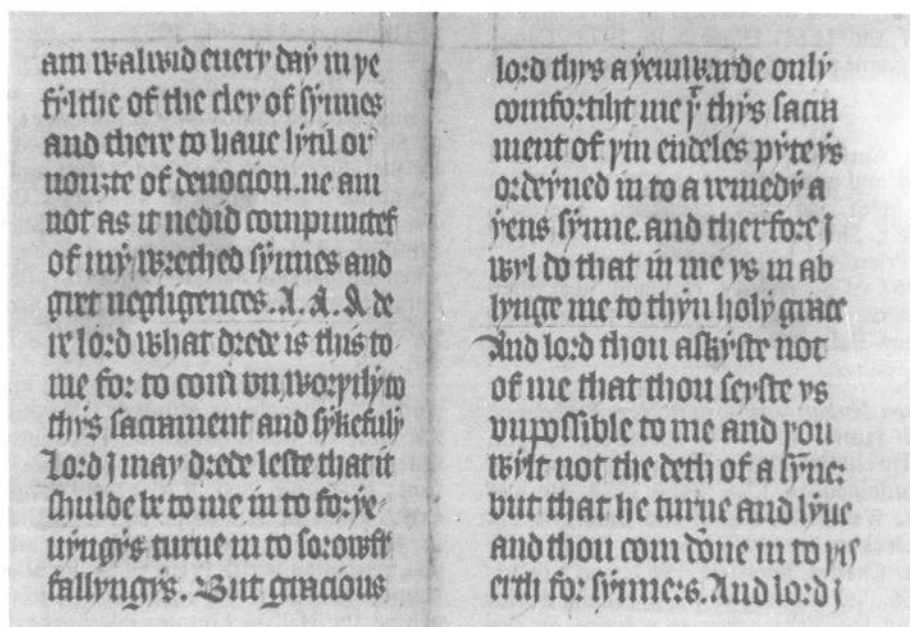 am walwid euery day in ye
fylthe of the cley of synnes
and there to haue lytil or
nouzte of deuocion. ne am
not as it nedid compuncte
of my wreched synnes and
gret negligences. A. A. A de
re lord what drede is this to
me for to com vn worthily to
thys sacrament and sykefuly
Lord j may drede leste that it
shulde be to me in to forye
uyngys turne in to sorowful
fallyngys. But gracious
lord thys a yenwarde only
comfortiht me yt thys sacra
ment of yin endeles pyte ys
ordeyned in to a remedy a
yens synne. and therfore j
wyl do that in me ys in ab
lynge me to thyn holy grace
And lord thou askyste not
of me that thou seyste ys
vnpossible to me and you
wylt not the deth of a syner
but that he turne and lyue
and thou com done in to yis
erth for synners. And lord j